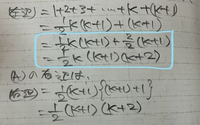 (左辺)=1+2+3+‥‥+k+(k+1)
=1/2k(k+1)+(k+1)
=1/2k(k+1)+2/2(k+1)
=1/2k(k+1)(k+2)
(A)の右辺は、
(右辺)=1/2(k+1){(k+1)+1}
=1/2(k+1)(k+2)